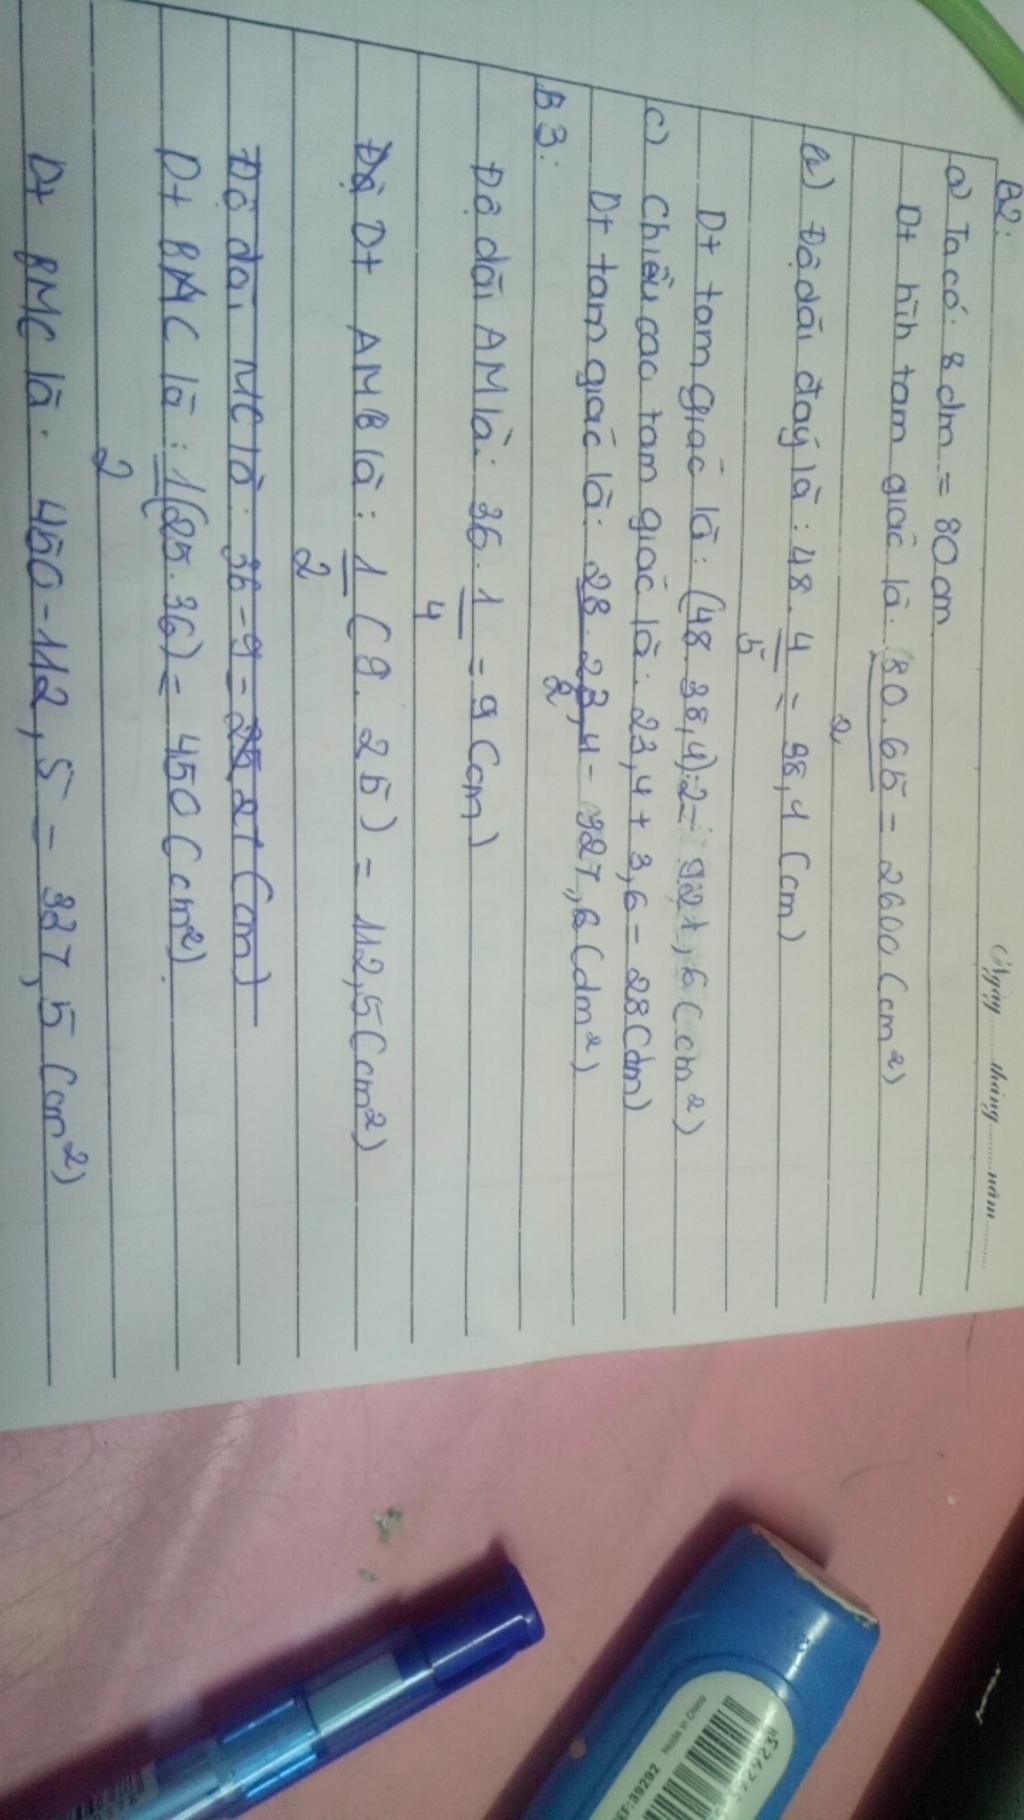 Ngày.......tháng.........năm............
B2:
a) Ta có: 8 dm = 80 cm
Dt hình tam giác là: 80.65 = 2600 (cm²)
2
b) Độ dài đáy là: 48. 4 = 38,4 (cm)
5
Dt tam giác là: (48. 38,4):2= 921,6 (cm²)
c) Chiều cao tam giác là: 23,4 + 3,6 = 28 (dm)
Dt tam giác là: 28. 23,4 = 327,6 (dm²)
2
B3:
Độ dài AM là: 36. 1 = 9 (cm)
4
Dt AMB là: 1 (9. 25) = 112,5 (cm²)
2
Độ dài MC là: 36-9= 27 (cm)
Dt BAC là: 1 (25.36)= 450 (cm²)
2
Dt BMC là: 450-112,5 = 337,5 (cm²)
Made in China
REF:39292